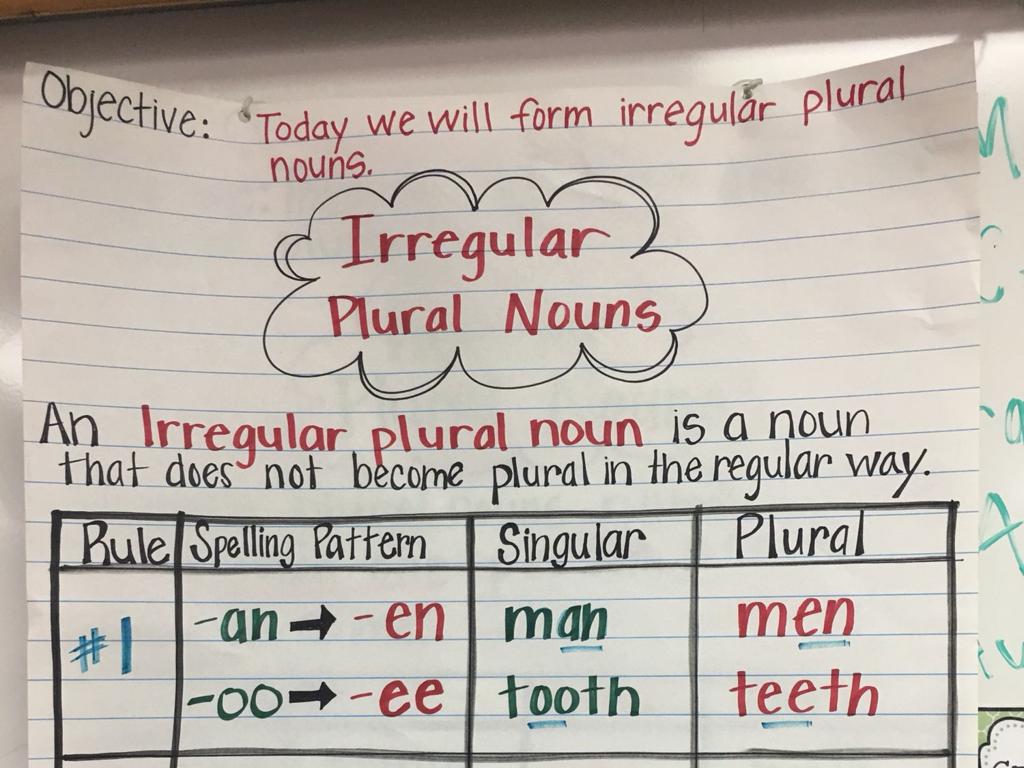 Objective: Today we will form irregular plural
nouns.
Irregular
Plural Nouns
An Irregular plural noun is a noun
that does not become plural in the regular way.
Rule Spelling Pattern Singular Plural
#1 -an → -en man men
-oo → -ee tooth teeth